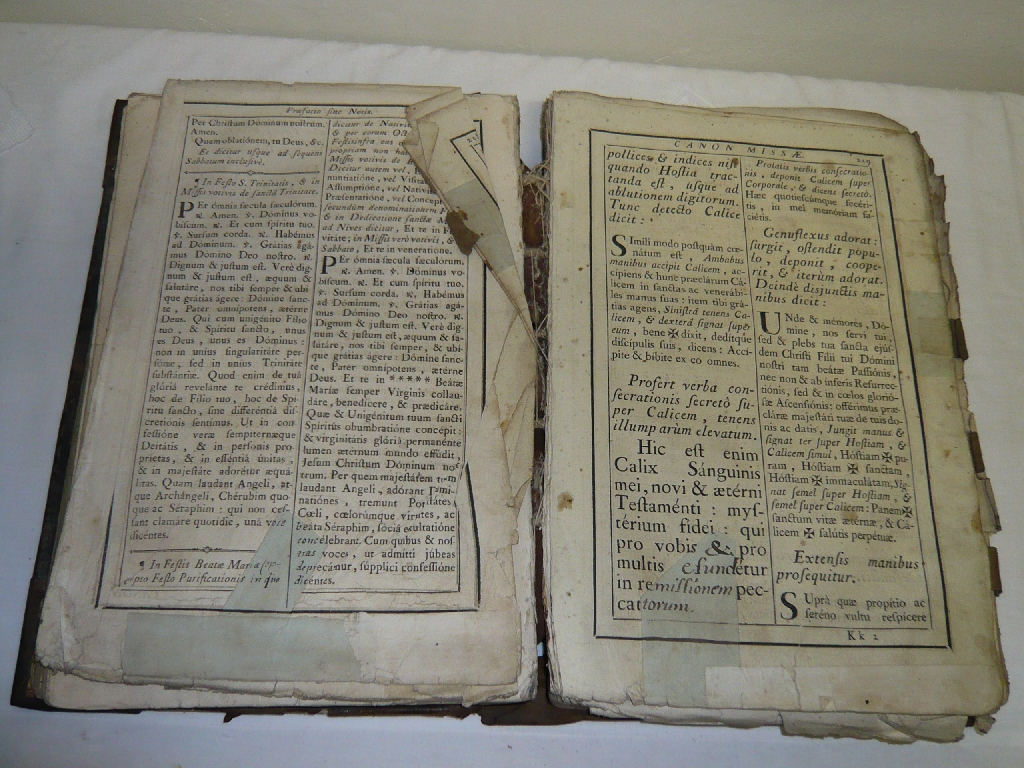 Præfatio sine Notis.
Per Christum Dóminum nostrum.
Amen.
Quam oblatiónem, tu Deus, &c.
Et dicitur usque ad sequens
Sabbatum inclusivè.
¶ In Festo S. Trinitatis, & in
Missis votivis de sanctâ Trinitate.
PEr ómnia sæcula sæculorum.
℟. Amen. ℣. Dóminus vo-
bíscum. ℟. Et cum spíritu tuo.
℣. Sursum corda. ℟. Habémus
ad Dóminum. ℣. Grátias agá-
mus Dómino Deo nostro. ℟.
Dignum & justum est. Verè dig-
num & justum est, æquum &
salutáre, nos tibi semper & ubí-
que grátias ágere: Dómine sanc-
te, Pater omnípotens, ætérne
Deus. Qui cum unigénito Fílio
tuo, & Spíritu sancto, unus
es Deus, unus es Dóminus:
non in uníus singularitáte per-
sónæ, sed in uníus Trinitáte
substántiæ. Quod enim de tuâ
glóriâ revelánte te crédimus,
hoc de Fílio tuo, hoc de Spí-
ritu sancto, sine differéntiâ dis-
cretiónis sentímus. Ut in con-
fessióne veræ sempiternæque
Deitátis, & in persónis pro-
príetas, & in esséntiâ únitas,
& in majestáte adorétur æquá-
litas. Quam laudant Angeli, at-
que Archángeli, Chérubim quo-
que ac Séraphim: qui non ces-
sant clamáre quotídie, unâ voce
dicéntes.
¶ In Festis Beatæ Mariæ
pto Festo Purificationis in quo
dicitur de Nativi
& per eorum
Festi infra eas
propriam non hab
Missis votivis de
Dicitur autem vel,
nuntiatióne, vel Visita
Assumptióne, vel Nativi
Præsentatióne, vel Concep
secundùm denominationem F
& in Dedicatione sanctæ M
ad Nives dicitur, Et te in F
vitáte; in Missis verò votivis, &
Sabbato, Et te in veneratióne.
PEr ómnia sæcula sæculórum.
℟. Amen. ℣. Dóminus vo-
bíscum. ℟. Et cum spíritu tuo.
℣. Sursum corda. ℟. Habémus
ad Dóminum. ℣. Grátias agá-
mus Dómino Deo nostro. ℟.
Dignum & justum est. Verè dig-
num & justum est, æquum & sa-
lutáre, nos tibi semper, & ubí-
que grátias ágere: Dómine sanc-
te, Pater omnípotens, ætérne
Deus. Et te in ***** Beátæ
Maríæ semper Vírginis collau-
dáre, benedícere, & prædicáre.
Quæ & Unigénitum tuum sancti
Spíritus obumbratióne concépit:
& virginitátis glóriâ permanénte
lumen ætérnum mundo effúdit,
Jesum Christum Dóminum nos-
trum. Per quem majestátem tuam
laudant Angeli, adórant Domi-
natiónes, tremunt Potestátes,
Cœli, cœlorúmque virtútes, ac
beáta Séraphim, sóciâ exultatióne
concélebrant. Cum quibus & nos-
tras voces, ut admítti júbeas
deprecámur, súpplici confessióne
dicéntes.
CANON MISSÆ.
pollices & indices nisi
quando Hostia trac-
tanda est, usque ad
ablutionem digitorum.
Tunc detecto Calice
dicit:
SImili modo postquàm cœ-
nátum est, Ambabus
manibus accipit Calicem, ac-
cípiens & hunc præclárum Cá-
licem in sanctas ac venerábi-
les manus suas: item tibi grá-
tias agens, Sinistrâ tenens Ca-
licem, & dexterâ signat super
eum, bene✠dixit, dedítque
discípulis suis, dicens: Accí-
pite & bíbite ex eo omnes.
Profert verba con-
secrationis secretò su-
per Calicem, tenens
illum parùm elevatum.
Hic est enim
Calix Sánguinis
mei, novi & ætérni
Testaménti: mys-
térium fídei: qui
pro vobis & pro
multis efundétur
in remissiónem pec-
catórum.
Prolatis verbis consecratio-
nis, deponit Calicem super
Corporale, & dicens secretò.
Hæc quotiescúmque fecéri-
tis, in mei memóriam fa-
ciétis.
Genuflexus adorat:
surgit, ostendit popu-
lo, deponit, coope-
rit, & iterùm adorat.
Deindè disjunctis ma-
nibus dicit:
UNde & mémores, Dó-
mine, nos servi tui,
sed & plebs tua sancta ejús-
dem Christi Fílii tui Dómini
nostri tam beátæ Passiónis,
nec non & ab ínferis Resurrec-
tiónis, sed & in cœlos glorió-
sæ Ascensiónis: offérimus præ-
cláræ majestáti tuæ de tuis do-
nis ac datis, Jungit manus &
signat ter super Hostiam, &
Calicem simul, Hóstiam ✠ pu-
ram, Hóstiam ✠ sanctam,
Hóstiam ✠ immaculátam, Sig-
nat semel super Hostiam, &
semel super Calicem: Panem ✠
sanctum vitæ ætérnæ, & Cá-
licem ✠ salútis perpétuæ.
Extensis manibus
prosequitur.
SUprà quæ propítio ac
seréno vultu respícere
Kk 2